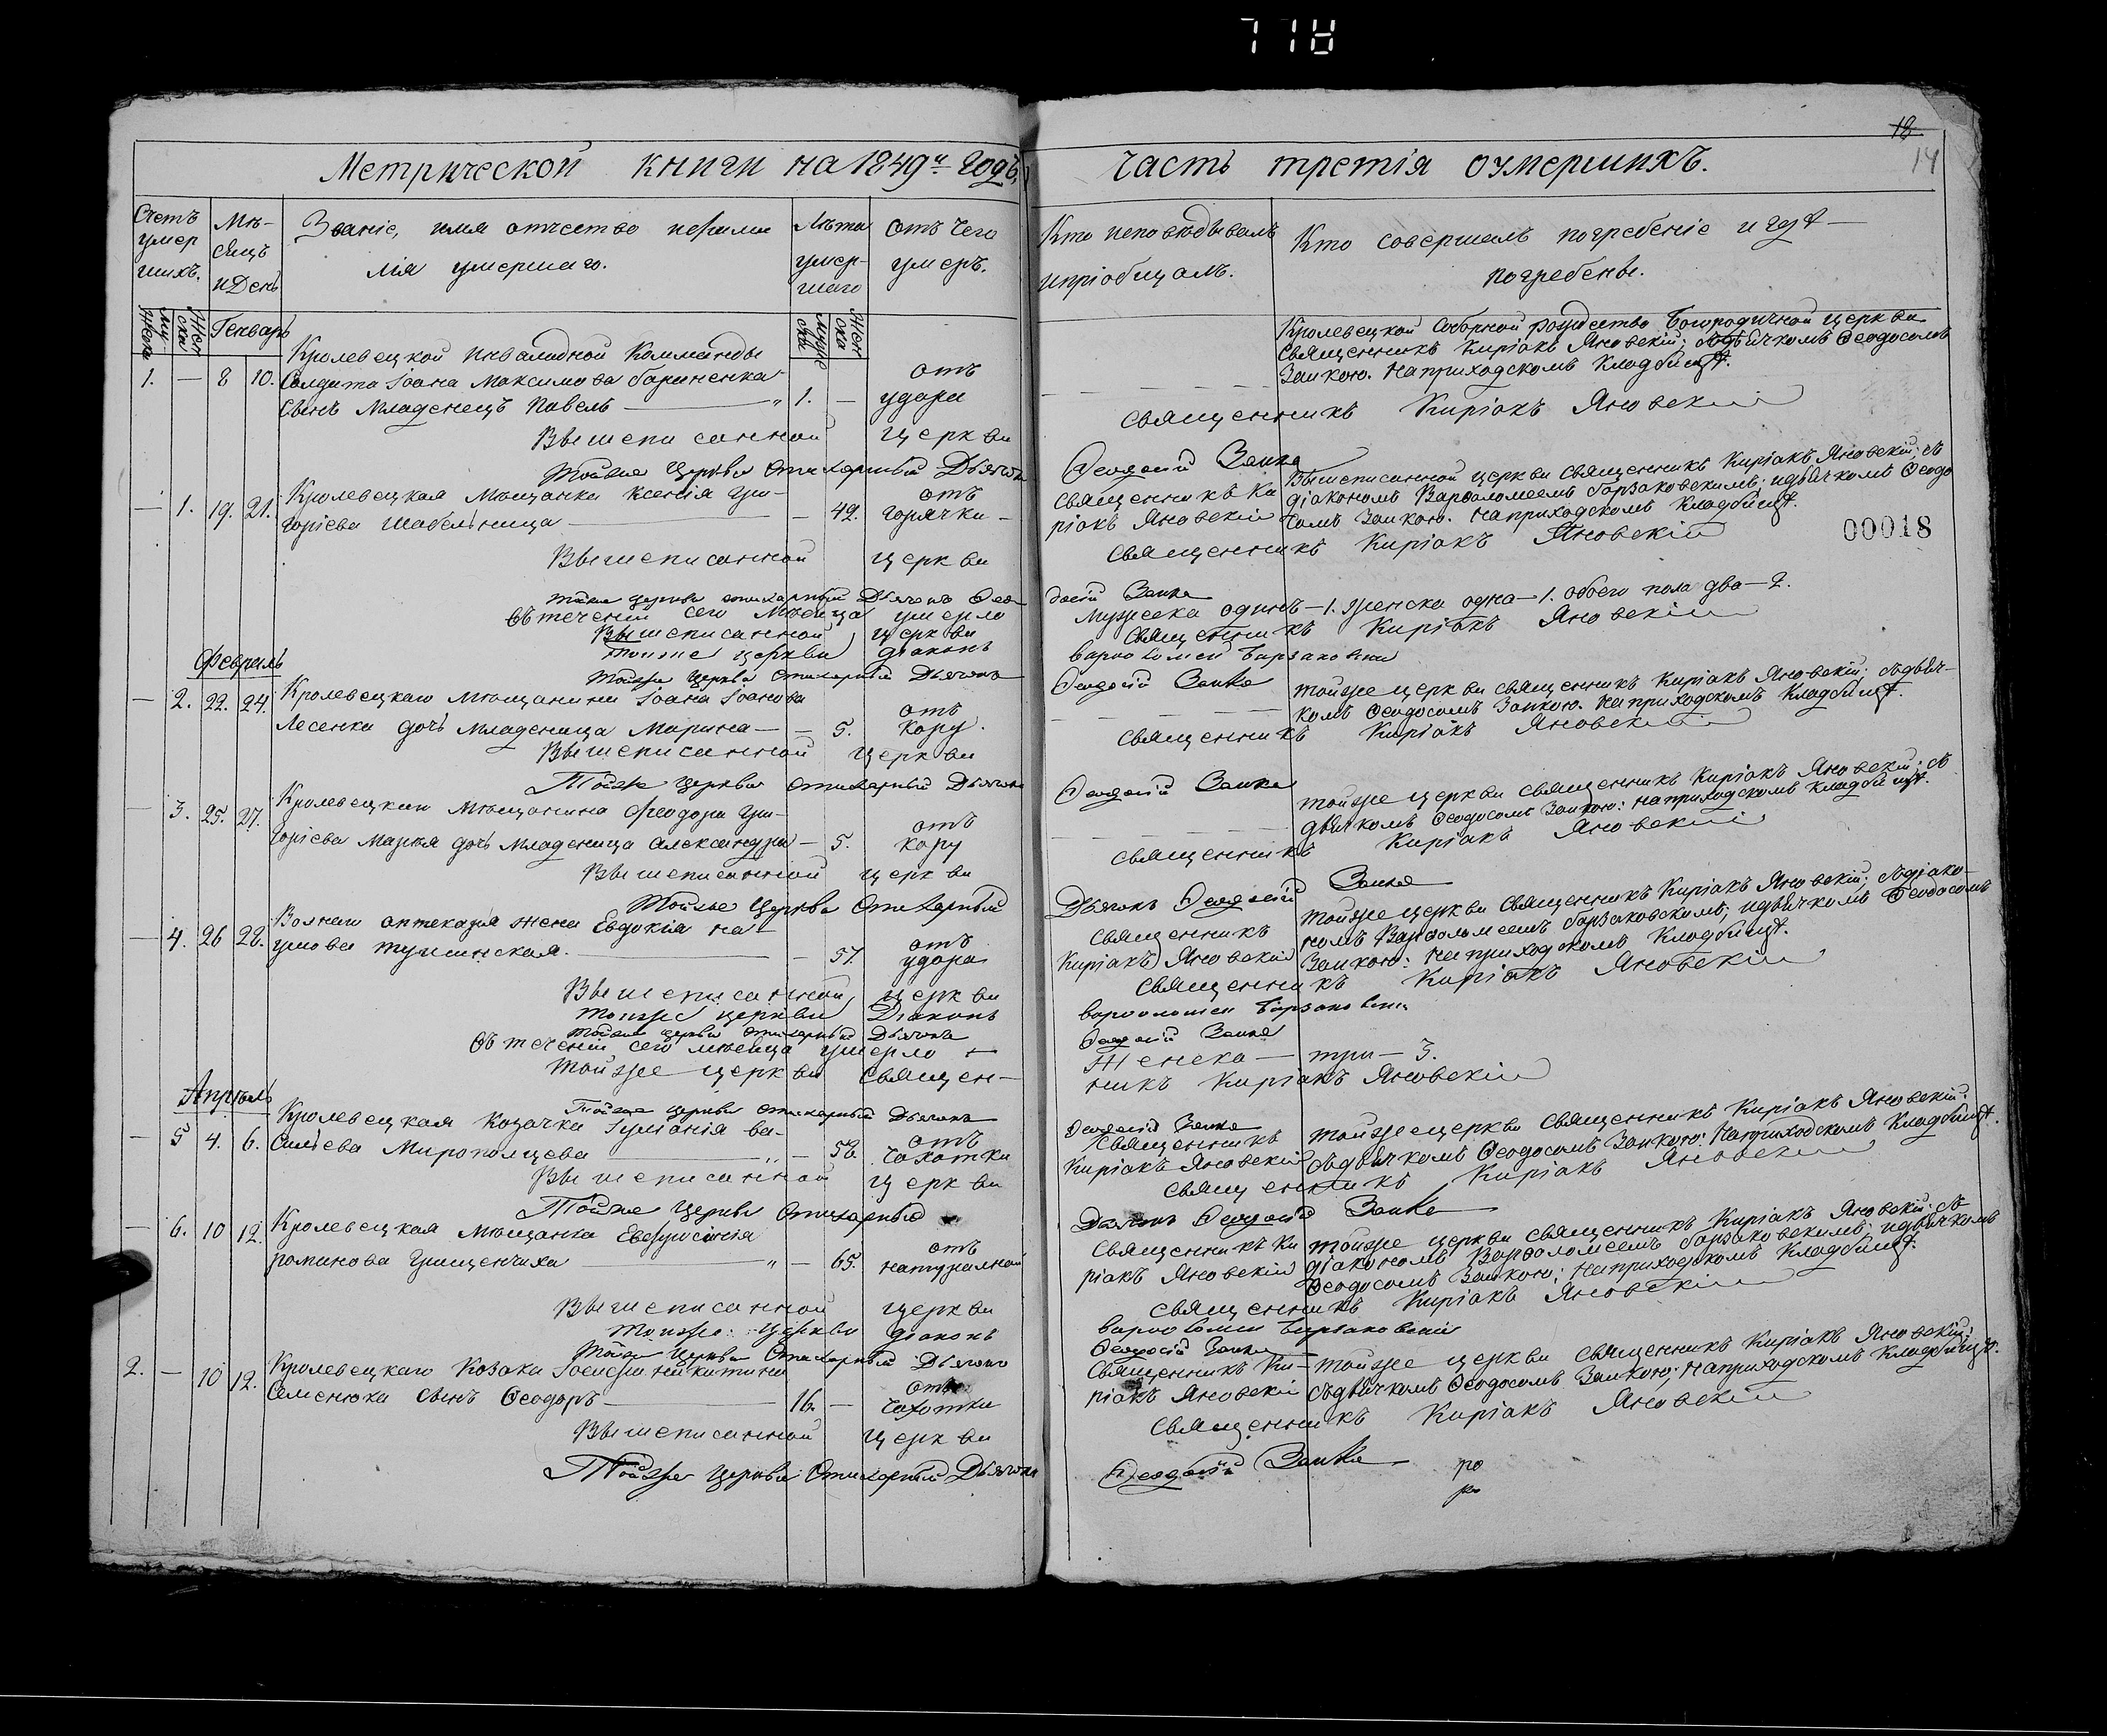 778
18
14
Метрической книги на 1849й Годъ,
часть третія оумершихъ.
Счетъ умершихъ.
Мѣсяцъ и День
Званіе, имя отчество и фамилія умершаго.
Лѣта умершаго
отъ чего умеръ.
Кто исповѣдывалъ и пріобщалъ.
Кто совершалъ погребеніе и гдѣ погребены.
Мужеска
Женска
Генварь
Мужеска
Женска
Кролевецкой Инвалидной Комманды
1. — 8 10. Солдата Іоана Максимова
сынъ Младенецъ Павелъ — 1. — отъ удара
Кролевецкой Соборной рождество Богородичной церкви
Священникъ Киріакъ Яновскій; съ дьячкомъ Ѳеодосомъ
Заикою. На приходскомъ Кладбищѣ.
Вышеписанной церкви священникъ Киріакъ Яновскій
Тойже Церкви Стихарный Дьячокъ Ѳеодосій Заика
— 1. 19. 21. Кролевецкая Мѣщанка Ксенія Григоріева
Шабельница — — 42. отъ горячки —
Священникъ Киріакъ Яновскій
Вышеписанной церкви Священникъ Киріакъ Яновскій; съ
діакономъ Варѳоломеемъ Барзаковскимъ; и дьячкомъ Ѳеодосомъ
Заикою. На приходскомъ Кладбищѣ.
00018
Вышеписанной церкви Священникъ Киріакъ Яновскій
Тойже церкви стихарный Дьячокъ Ѳеодосій Заика
Въ теченіи сего Мѣсяца умерло Мужеска одинъ — 1. женска одна — 1. обоего пола два — 2.
Вышеписанной церкви Священникъ Киріакъ Яновскій
Тойже церкви діаконъ Варѳоломей Барзаковскій
Тойже Церкви Стихарный Дьячокъ Ѳеодосій Заика
Февраль
— 2. 22. 24. Кролевецкаго Мѣщанина Іоана Іоанова
Лесенка дочь Младеница Марина — — 5. отъ кору.
Тойже церкви священникъ Киріакъ Яновскій; съ дьячкомъ
Ѳеодосомъ Заикою. На приходскомъ Кладбищѣ.
Вышеписанной церкви священникъ Киріакъ Яновскій
Тойже Церкви Стихарный Дьячокъ Ѳеодосій Заика
— 3. 25. 27. Кролевецкаго Мѣщанина Феодора Григоріева
дочь Младеница Александра — 5. отъ кору
Тойже церкви священникъ Киріакъ Яновскій; съ
дьячкомъ Ѳеодосомъ Заикою: на приходскомъ кладбищѣ.
Вышеписанной церкви священникъ Киріакъ Яновскій
Тойже Церкви Стихарный Дьячокъ Ѳеодосій Заика
— 4. 26 28. аптекаря Жена Евдокія Наумова
— — 57. отъ удара
Священникъ Киріакъ Яновскій
Тойже церкви Священникъ Киріакъ Яновскій; съ діакономъ
Варѳоломеемъ Барзаковскимъ; и дьячкомъ Ѳеодосомъ
Заикою: На приходскомъ Кладбищѣ.
Вышеписанной церкви священникъ Киріакъ Яновскій
Тойже церкви Діаконъ Варѳоломей Барзаковскій
Тойже церкви стихарный Дьячокъ Ѳеодосій Заика
Въ теченіи сего мѣсяца умерло — Женска — три — 3.
Тойже церкви Священникъ Киріакъ Яновскій
Тойже церкви стихарный Дьячокъ Ѳеодосій Заика
Апрѣль
— 5 4. 6. Кролевецкая Козачка Іуліанія Василіева
Мирополцева — 58. отъ чахотки
Священникъ Киріакъ Яновскій
Тойже церкви Священникъ Киріакъ Яновскій;
съ дьячкомъ Ѳеодосомъ Заикою: На приходскомъ Кладбищѣ.
Вышеписанной церкви Священникъ Киріакъ Яновскій
Тойже Церкви Стихарный Дьячокъ Ѳеодосій Заика
— 6. 10 12. Кролевецкая Мѣщанка Евфросинія
Романова Грищенчиха — 65. отъ натуральной
Священникъ Киріакъ Яновскій
Тойже церкви священникъ Киріакъ Яновскій; съ
діакономъ Варѳоломеемъ Барзаковскимъ; и дьячкомъ
Ѳеодосомъ Заикою; На приходскомъ Кладбищѣ.
Вышеписанной церкви Священникъ Киріакъ Яновскій
Тойже церкви діаконъ Варѳоломей Барзаковскій
Тойже Церкви Стихарный Дьячокъ Ѳеодосій Заика
2. — 10 12. Кролевецкаго Козака Іосифа Никитина
Семенюка сынъ Ѳеодоръ — 16. — отъ чахотки
Священникъ Киріакъ Яновскій
Тойже церкви священникъ Киріакъ Яновскій;
съ дьячкомъ Ѳеодосомъ Заикою; На приходскомъ Кладбищѣ.
Вышеписанной церкви Священникъ Киріакъ Яновскій
Тойже Церкви Стихарный Дьячокъ Ѳеодосій Заика